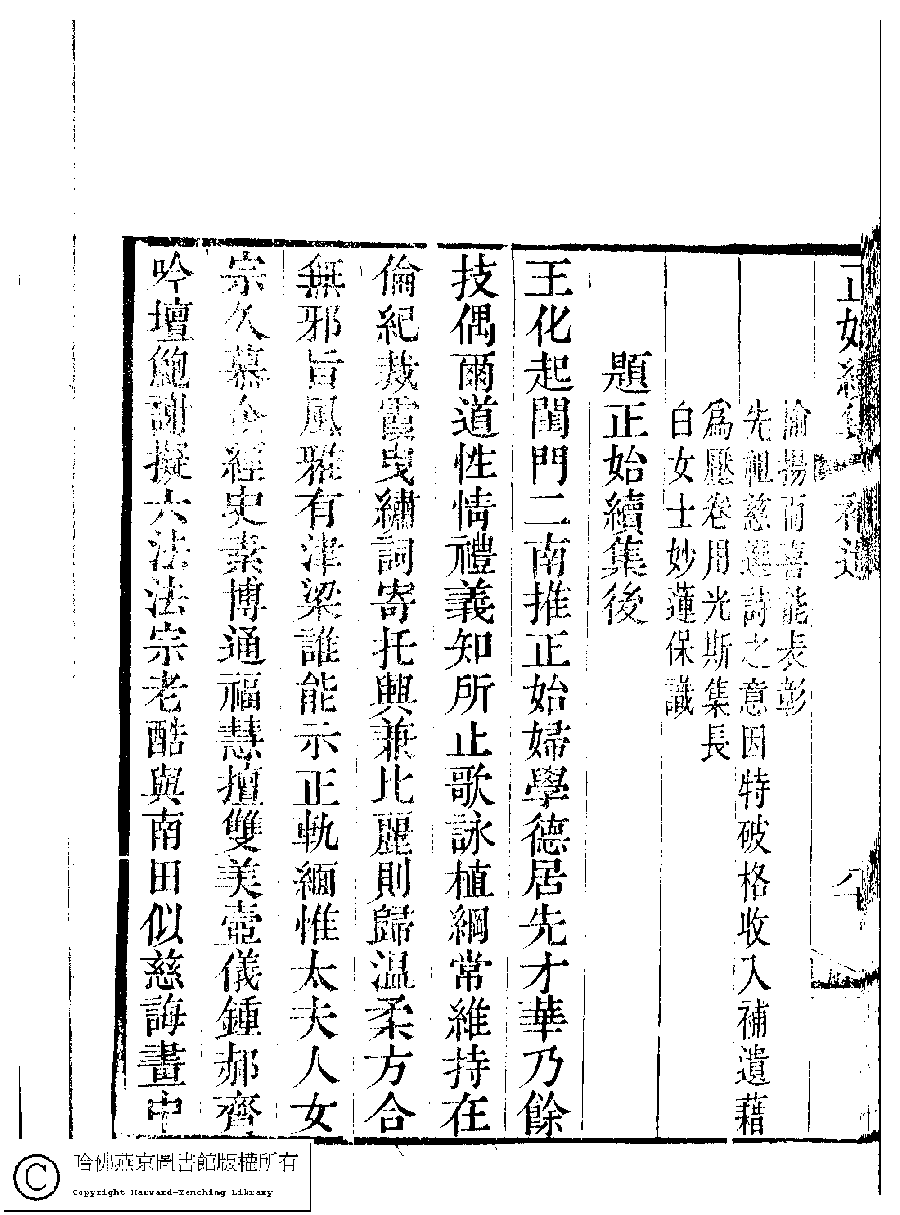 正始續集 補遺
揄揚而喜能表彰
先祖慈選詩之意因特破格收入補遺藉
爲壓卷用光斯集長
白女士妙蓮保識
題正始續集後
王化起閨門二南推正始婦學德居先才華乃餘
技偶爾道性情禮義知所止歌詠植綱常維持在
倫紀裁霞曳繡詞寄托興兼比麗則歸温柔方合
無邪旨風雅有津梁誰能示正軌緬惟太夫人女
宗久慕企經史素博通福慧擅雙美壼儀鍾郝齊
吟壇鮑謝擬六法法宗老酷與南田似慈誨畫中
哈佛燕京圖書館版權所有
Copyright Harvard-Yenching Library